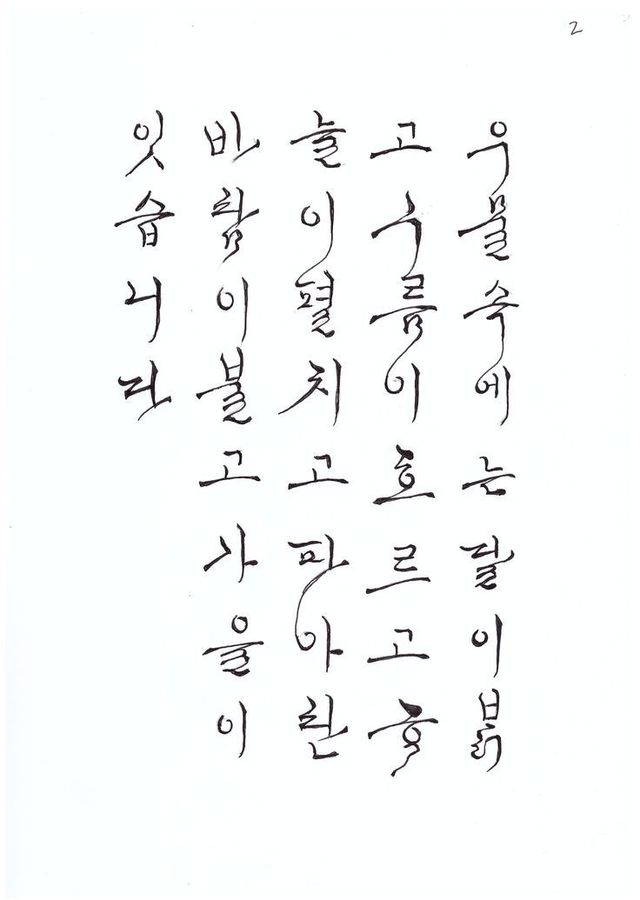 2
우물속에는달이밝
고구름이흐르고하
늘이펼치고파아란
바람이불고가을이
잇습니다